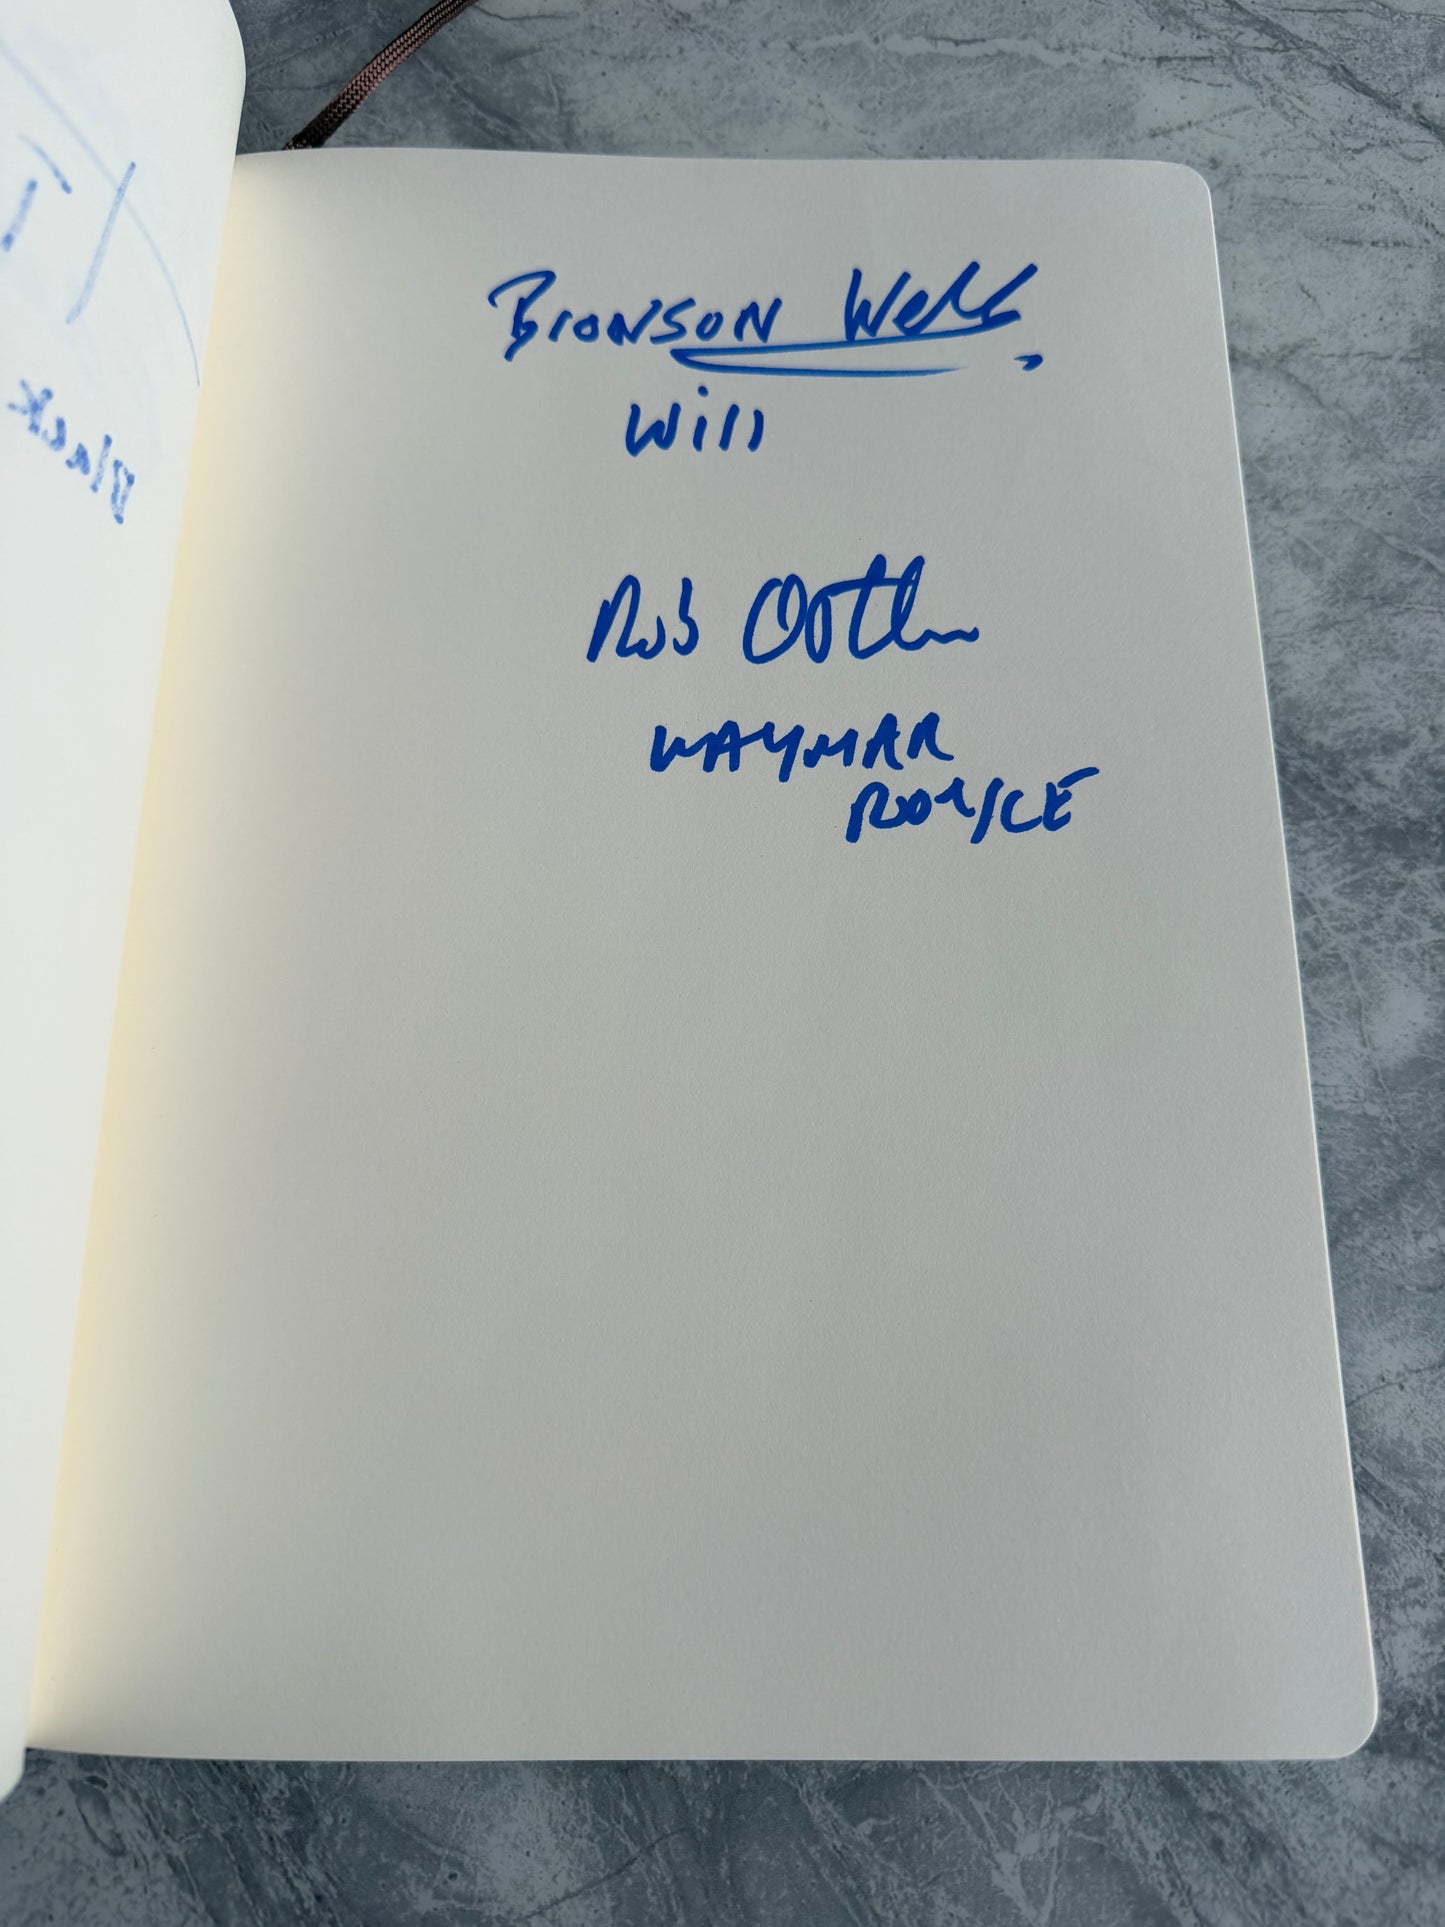 Black
BrONSON Webb
Will
Rob Ostlere
WAYMAR
ROYCE